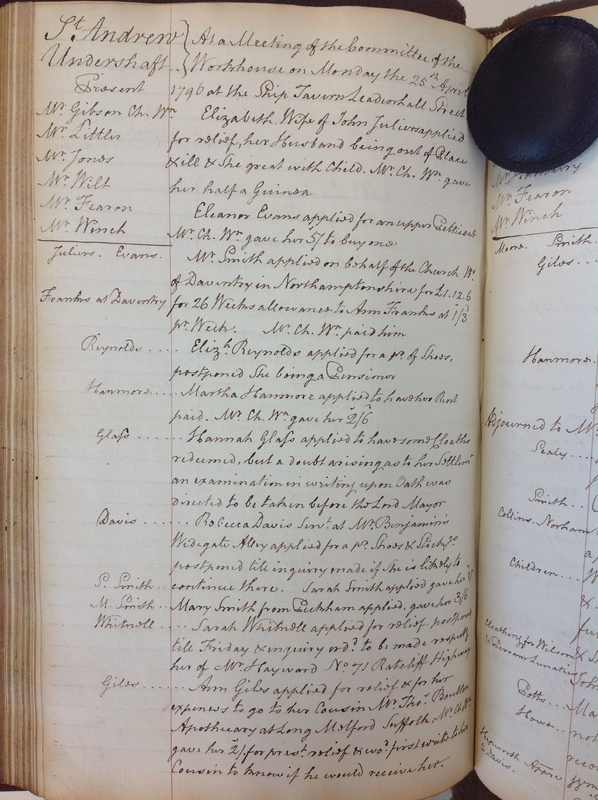 St. Andrew
Undershaft
Present
Mr. Gibson Ch. Wn
Mr. Littler
Mr. Jones
Mr. Wilt
Mr. Fearon
Mr. Winch
At a Meeting of the Committee of the
Workhouse on Monday the 25th April
1796 at the Ship Tavern Leadenhall Street
Elizabeth Wife of John Juliers applied
for relief, her Husband being out of Place
& ill & She great with Child. Mr. Ch. Wn gave
her half a Guinea
Eleanor Evans applied for an upper Petticoat
Mr. Ch. Wn gave her 5/ to buy one
Juliers. Evans.
Mr. Smith applied on behalf of the Church Wn
of Daventry in Northamptonshire for £1.12.6
Franks at Daventry
for 26 Weeks allowance to Ann Franks at 1/3
pr. Week. Mr. Ch. Wn paid him
Reynolds ....
Elizh. Reynolds applied for a pr. of Shoes,
postponed She being a Pensioner
Hanmore ....
Martha Hanmore applied to have two Rent
paid. Mr. Ch. Wn gave her 2/6
Glass ......
Hannah Glass applied to have some Cloaths
redeemed, but a doubt arising as to her Settlemt
an examination in writing upon Oath was
directed to be taken before the Lord Mayor
Davis ......
Rebecca Davis Servt. at Mr. Benjamin's
Widegate Alley applied for a pr. Shoes & Stockgs.
postponed till inquiry made if she is likely to
S. Smith ..
continue there. Sarah Smith applied gave her 1/
M. Smith ..
Mary Smith from Peckham applied, gave her 3/6
Whitnell ...
Sarah Whitnell applied for relief, postponed
till Friday & inquiry ord. to be made respectg
her of Mr. Hayward No. 71 Ratcliff Highway
Giles ......
Ann Giles applied for relief & for her
expences to go to her Cousin Mr. Thos. Boulton
Apothecary at Long Melford Suffolk Mr. Ch. Wn
gave her 2/ for prest. relief & wod. first write to her
Cousin to know if he would receive her.
Mr. Fearon
Mr. Winch
More. Smith
Giles ...
Hanmore.
Adjourned to Mr.
Sealy ...
Smith ..
Collins. Norham
Children ...
Cloathing for Wilson
Potts ...
Howe ..